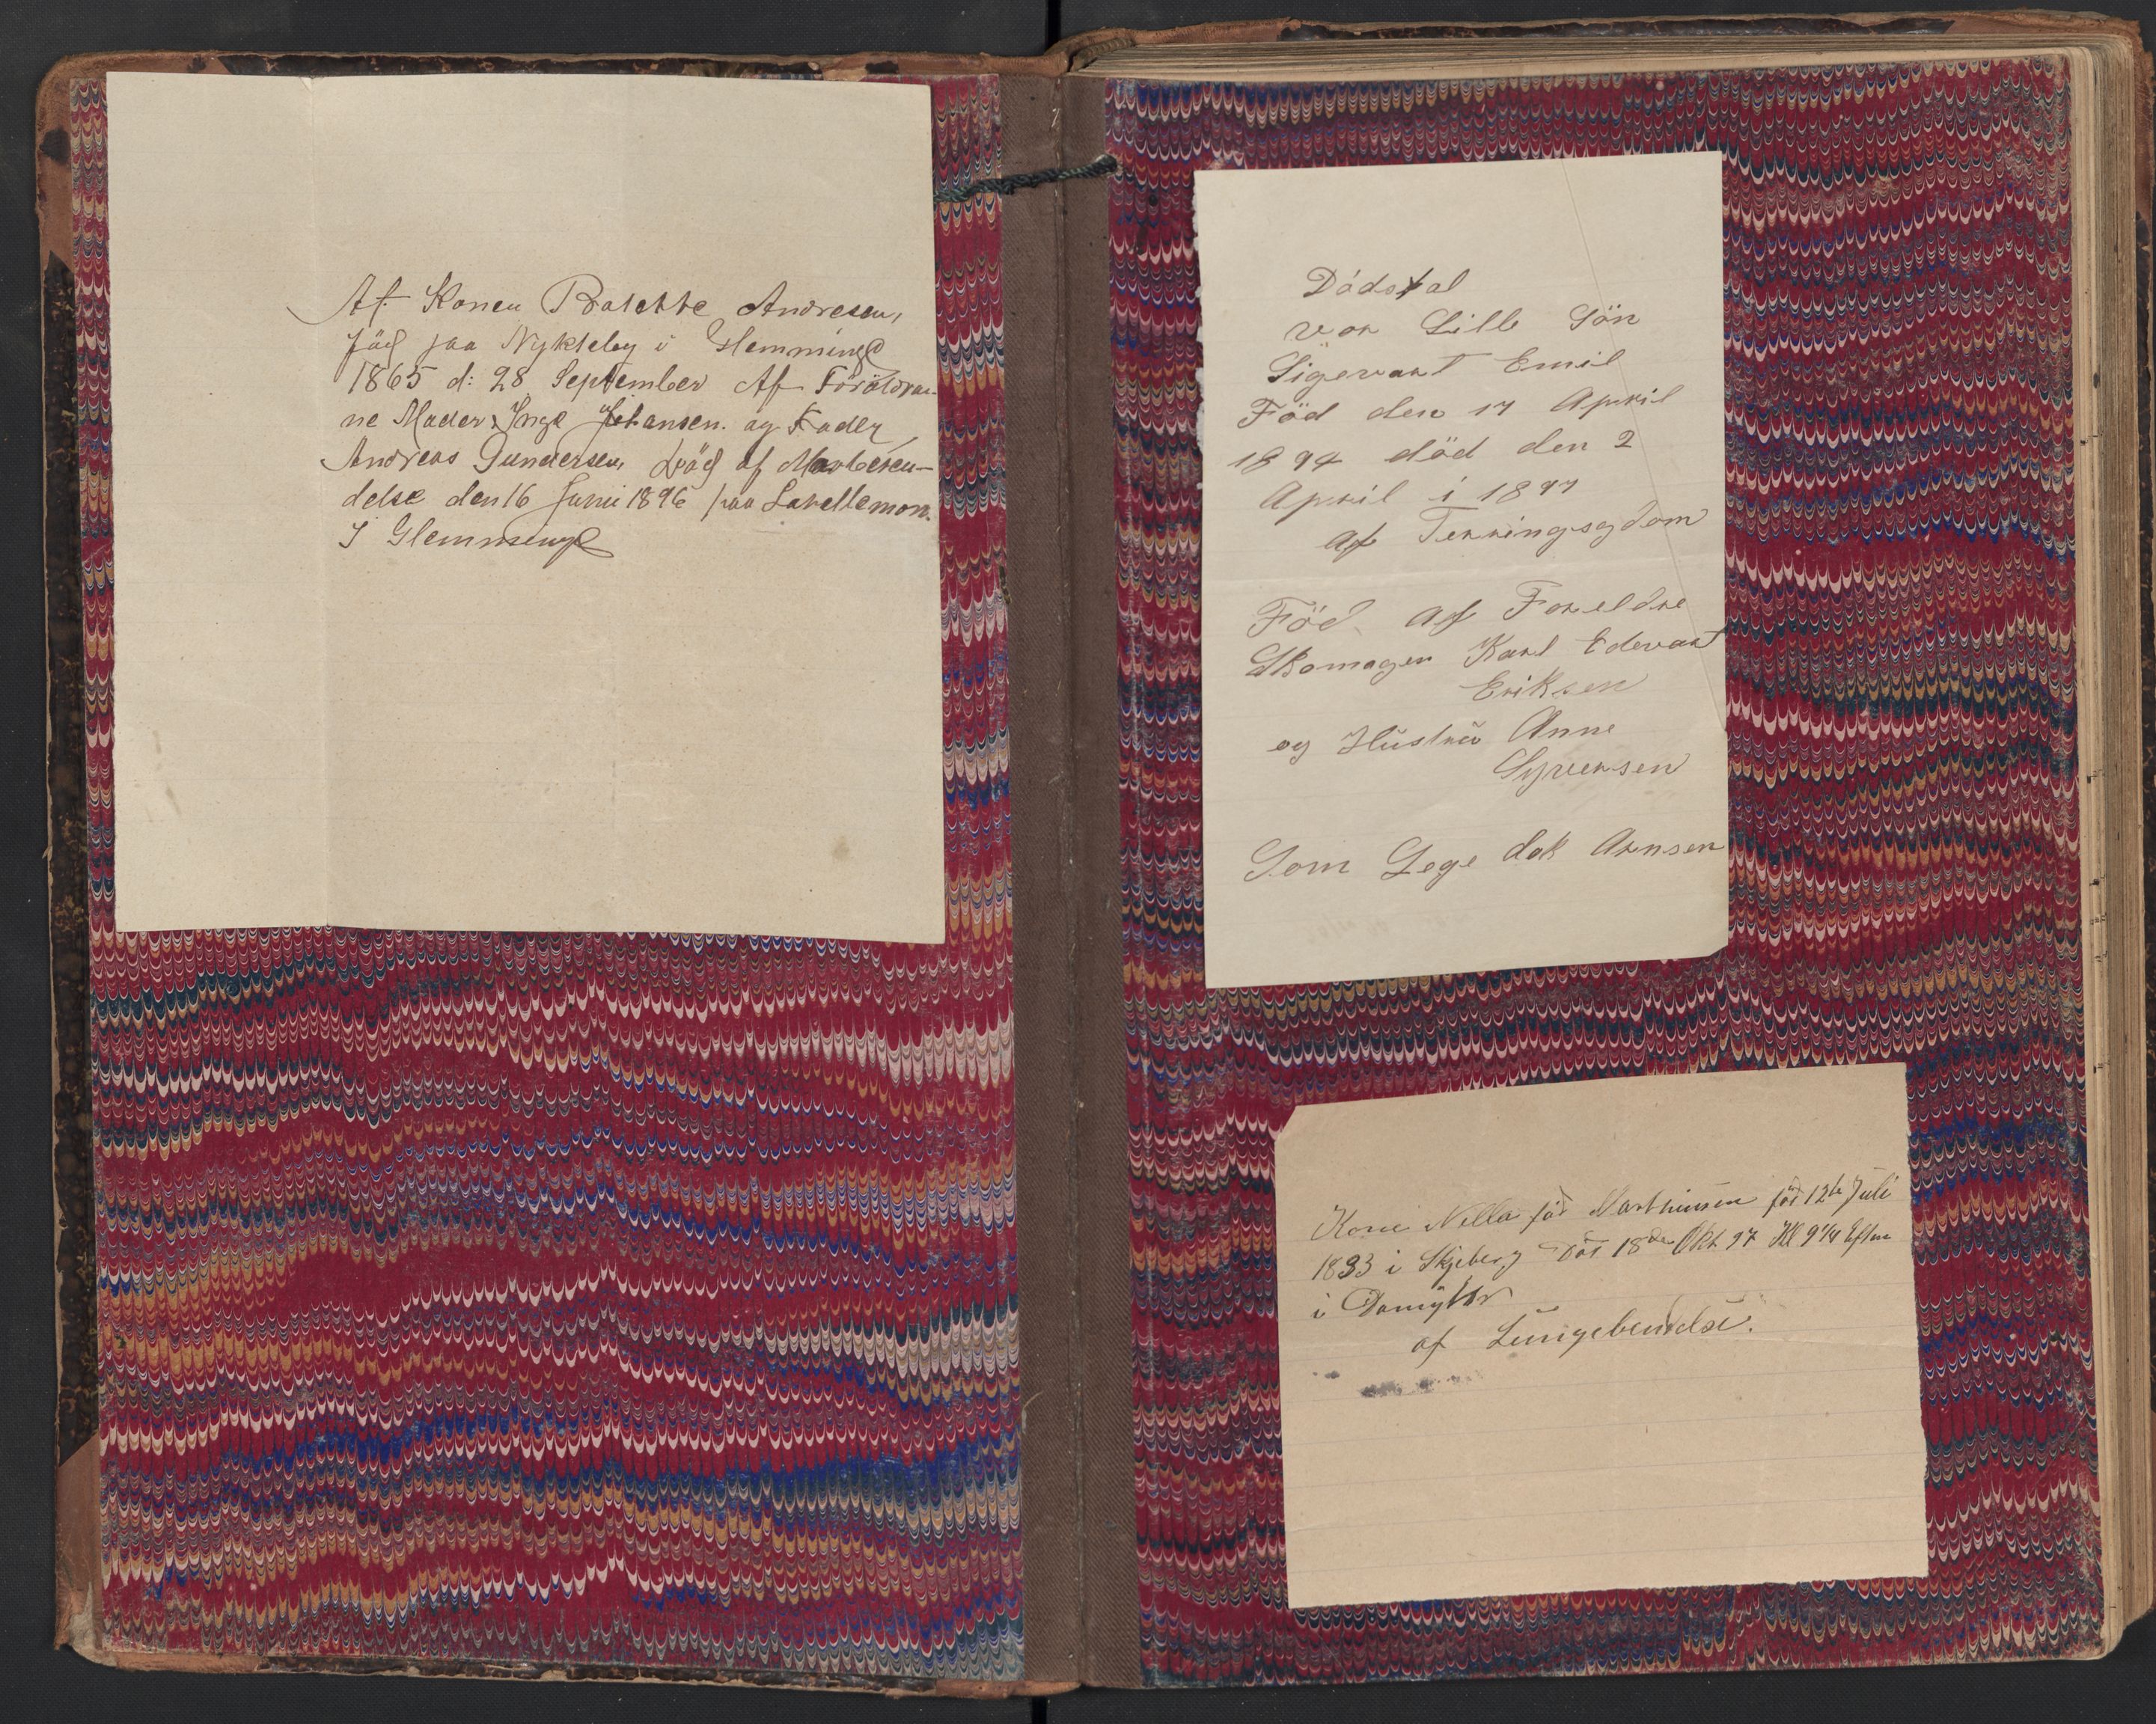 Af. Konen Bolette Andresen,
föd paa Nykleby i Glemminge
1865 d: 28 September Af Föräldrar-
ne Moder Inge Johansen. og Fader
Andreas Gundersen, död af
delse den 16 Juni 1896 paa
I Glemminge
Dödstal
vor Lille Sön
Sigevart Emil
Föd den 17 April
1894 död den 2
April i 1897
af Terringsygdom
Föd af Foreldre
Skomager Karl Edevart
Eriksen
og Hustru Anne
Syversen
Som Lege dok Arnsen
Kone Nella föd Marthinsen föd 12te Juli
1833 i Skjeberg Död 18de Okt 97 Kl 9 1/4 Eftm
i
af Lungebetendelse.